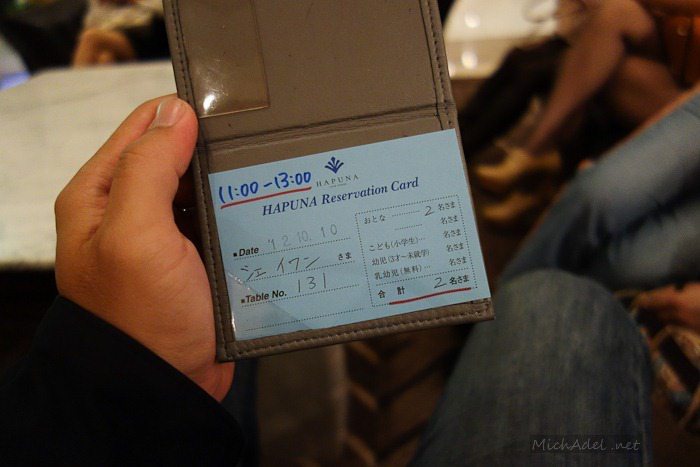 11:00-13:00
HAPUNA
HAPUNA Reservation Card
■Date '12.10.10
シェ イワン さま
■Table No. 131
おとな 2 名さま
名さま
こども(小学生) 名さま
幼児(3才〜未就学) 名さま
乳幼児(無料) 名さま
合 計 2 名さま
MichAdel.net